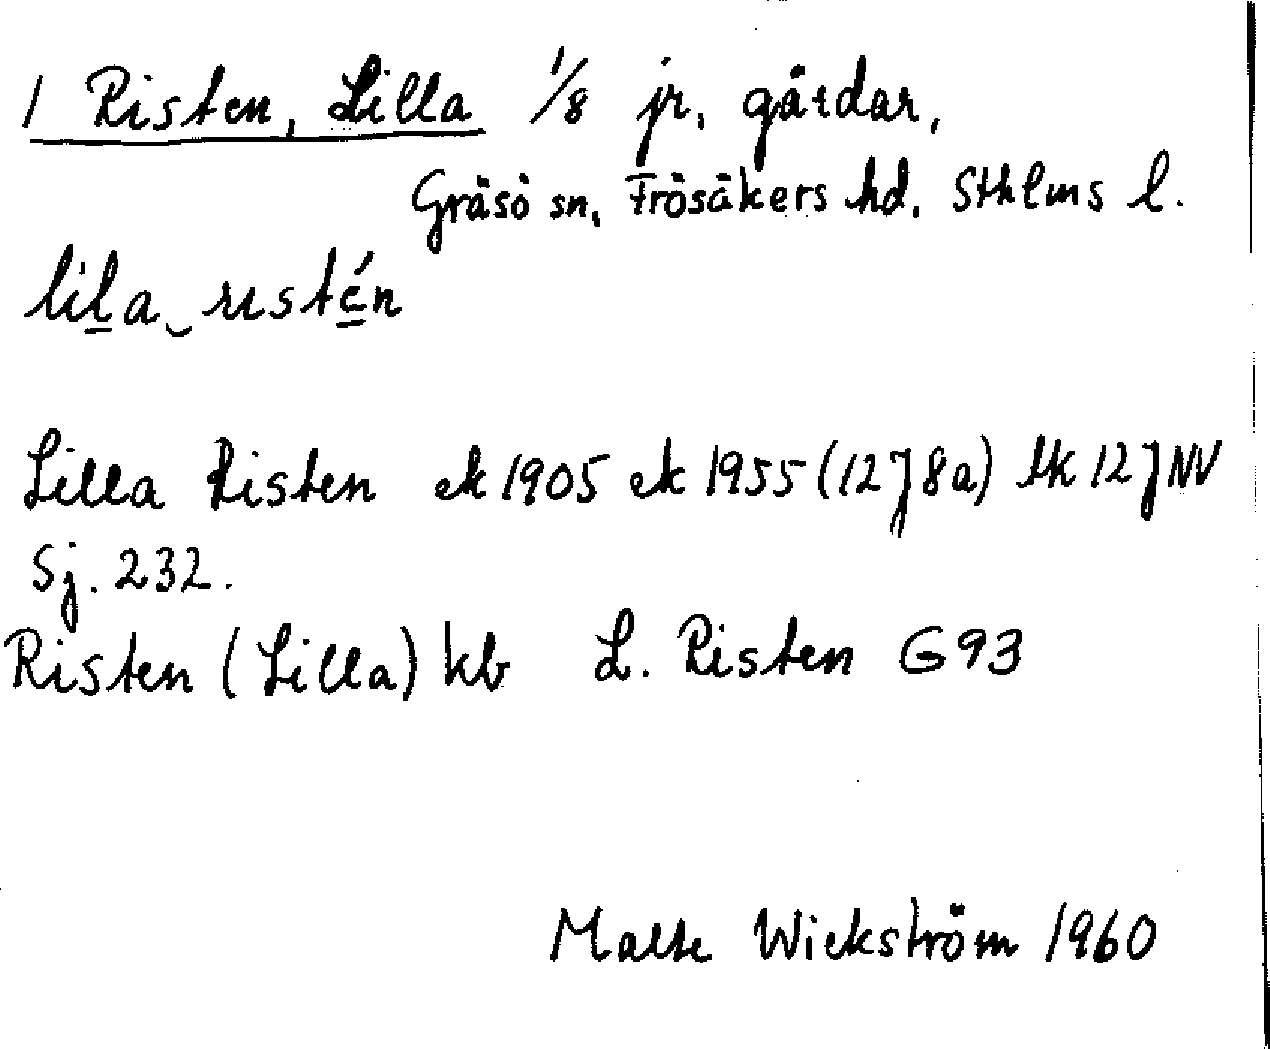 1 Risten, Lilla 1/8 jr, gårdar,
Gräsö sn, Frösåkers hd, Sthlms l.
lila ristén
Lilla Risten ek 1905 ek 1955 (12J8a) tk 12J NV
Sj. 232.
Risten (Lilla) kb L. Risten G93
Malte Wickström 1960